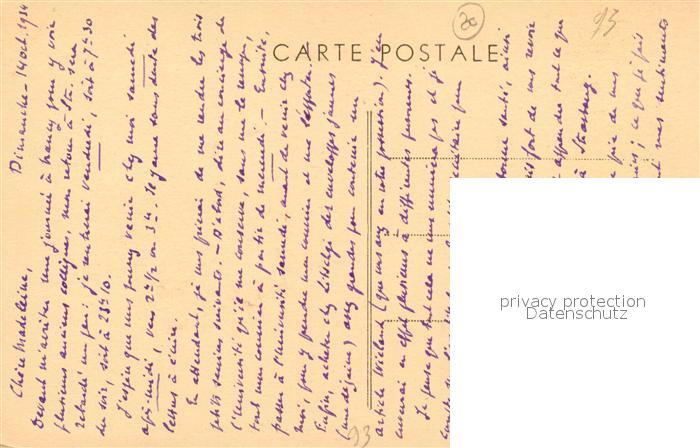 CARTE POSTALE
20
93
Dimanche - 14 oct. 1934
Chère Madeleine,
Devant m'arrêter une journée à Nancy pour y voir
plusieurs anciens collègues, mon retour à Stg. sera
retardé un peu : je rentrerai vendredi, soit à 7h30
du soir, soit à 23h10.
J'espère que vous pourrez venir chez moi samedi
après-midi, vers 2h 1/2 ou 3h. Il y aura sans doute des
lettres à écrire.
En attendant, je vous prierai de me rendre les trois
petits services suivants. - D'abord, dire au concierge de
l'Université qu'il me conserve, sans me le renvoyer,
tout mon courrier à partir de mercredi. - Ensuite,
passer à l'Université samedi, avant de venir chez
moi, pour y prendre mon courrier et me l'apporter.
Enfin, acheter chez des enveloppes jaunes
(une dizaine) assez grandes pour contenir un
article (que vous avez en votre possession). J'en
enverrai en effet plusieurs à différentes personnes.
Je pense que tout cela ne vous ennuiera pas et je
bonne santé, ainsi
fort de vous revoir
apprendre tout ce que
à Strasbourg.
de vous
; ce que je fais
mes sentiments
93
privacy protection
Datenschutz